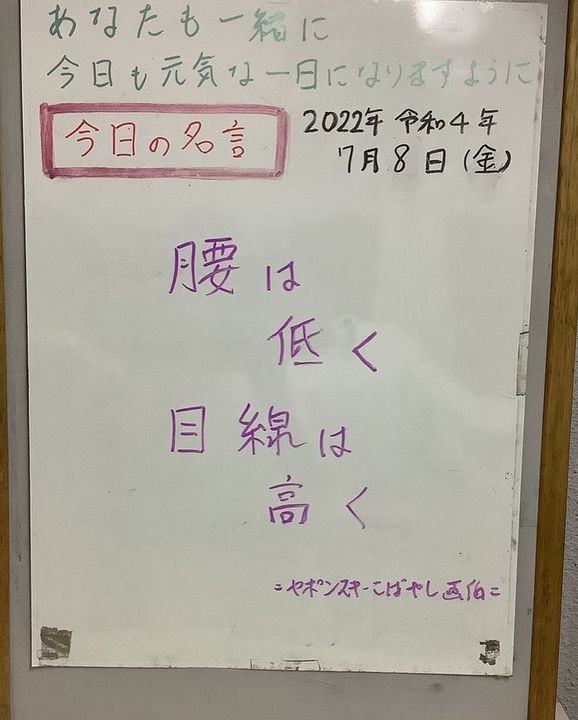 あなたも一緒に
今日も元気な一日になりますように
今日の名言
2022年 令和4年
7月8日(金)
腰は
低く
目線は
高く
=ヤポンスキーこばやし画伯=